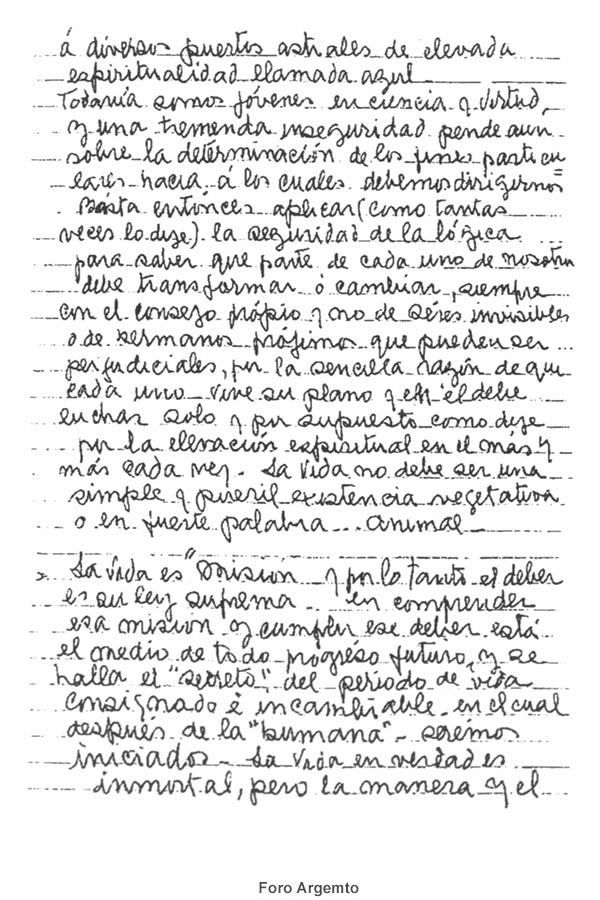 á diversos puertos astrales de elevada
espiritualidad llamada azul
Todavía somos jóvenes en ciencia y virtud,
y una tremenda inseguridad pende aun
sobre la determinación de los fines particu
lares hacia á los cuales debemos dirigirnos=
. Basta entónces aplicar (como tantas
veces lo dije) la seguridad de la lógica
para saber que parte de cada uno de nosotros
debe transformar ó cambiar, siempre
con el consejo própio y no de séres invisibles
o de hermanos prójimos que pueden ser
perjudiciales, por la sencilla razón de que
cada uno vive su plano y en él debe
luchar solo y por supuesto como dije
por la elevación espiritual en el más y
más cada vez. La vida no debe ser una
simple y pueril existencia vegetativa
o en fuerte palabra... animal
La vida es "Misión y por lo tanto el deber
es su ley suprema en comprender
esa misión y cumplir ese deber está
el medio de todo progréso futuro, y se
halla el "secreto" del período de vida
consignado é incambiable en el cual
después de la "humana" - seremos
iniciados - La vida en verdad es
inmortal, pero la manera y el
Foro Argemto